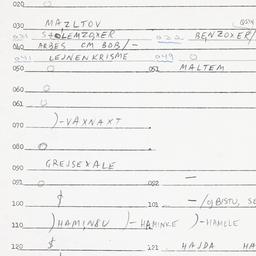 020
030 MAZLTOV
031 STOLEMZOXER 032 BENZOXER/
040 ARBES CM BOB/-
041 LEJNENKRISME 049
050 052 MALTEM
060
061
070 )-VAXNAXT
080
090 GREJSEXALE
091 092 —
100 101 -/gBISTU, SE
110 )HAMINBU )-HAMINKE )-HAMELE
120 $ 121 HAJDA HA